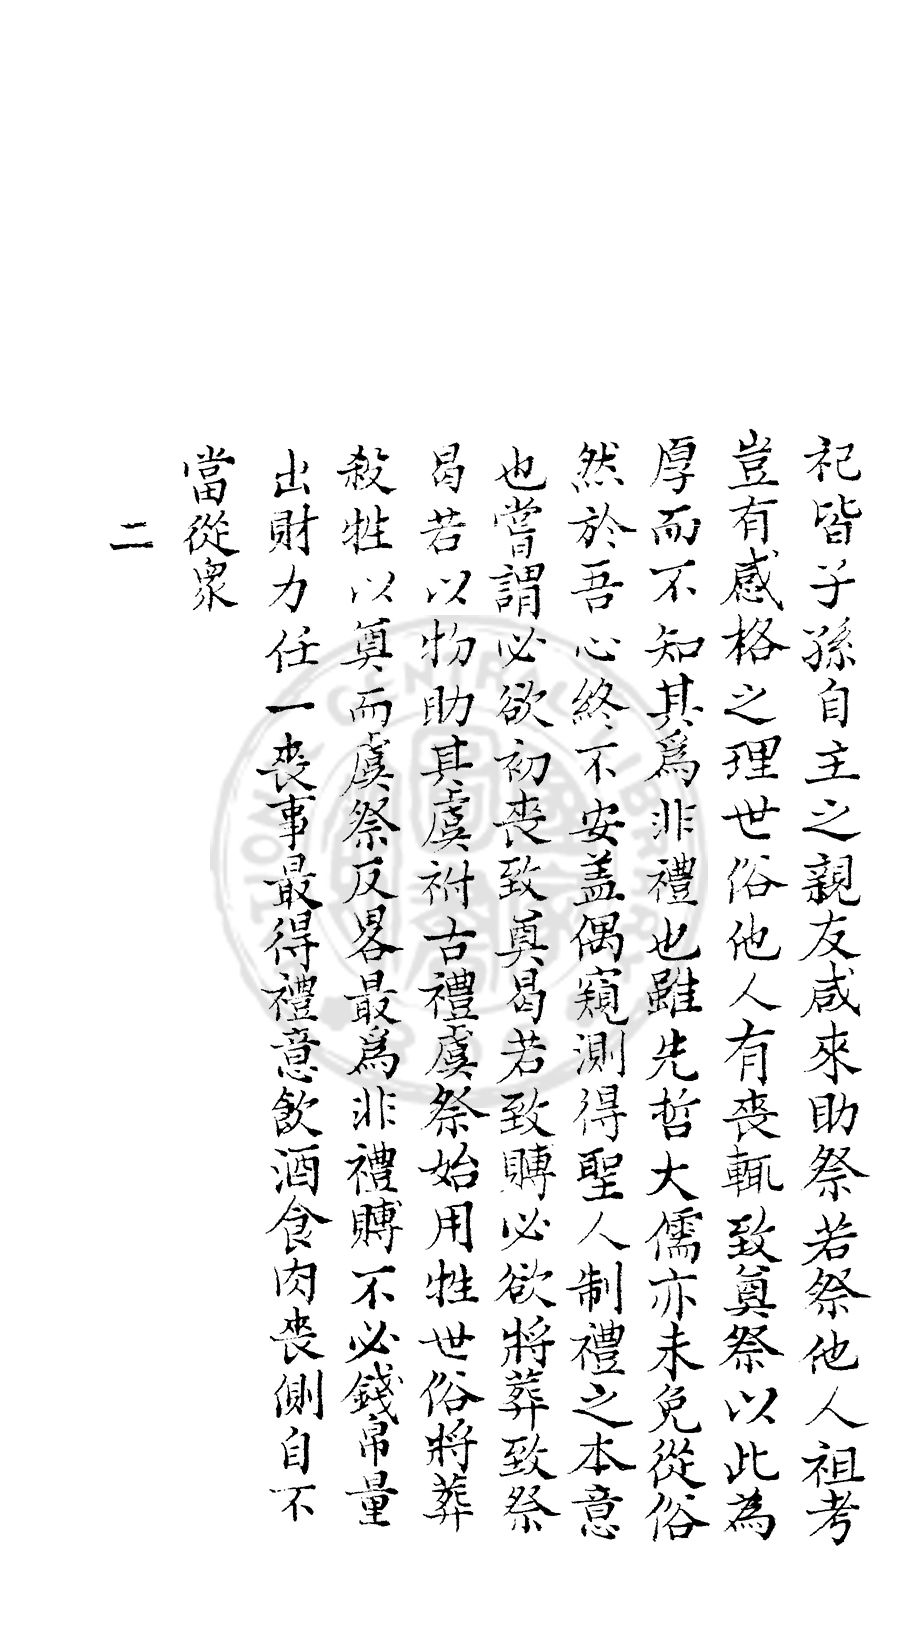 祀皆子孫自主之親友咸來助祭若祭他人祖考
豈有感格之理世俗他人有喪輒致奠祭以此為
厚而不知其爲非禮也雖先哲大儒亦未免從俗
然於吾心終不安盖偶窺測得聖人制禮之本意
也嘗謂必欲初喪致奠曷若致賻必欲將葬致祭
曷若以物助其虞祔古禮虞祭始用牲世俗將葬
殺牲以奠而虞祭反畧最爲非禮賻不必錢帛量
出財力任一喪事最得禮意飲酒食肉喪側自不
當從衆
二